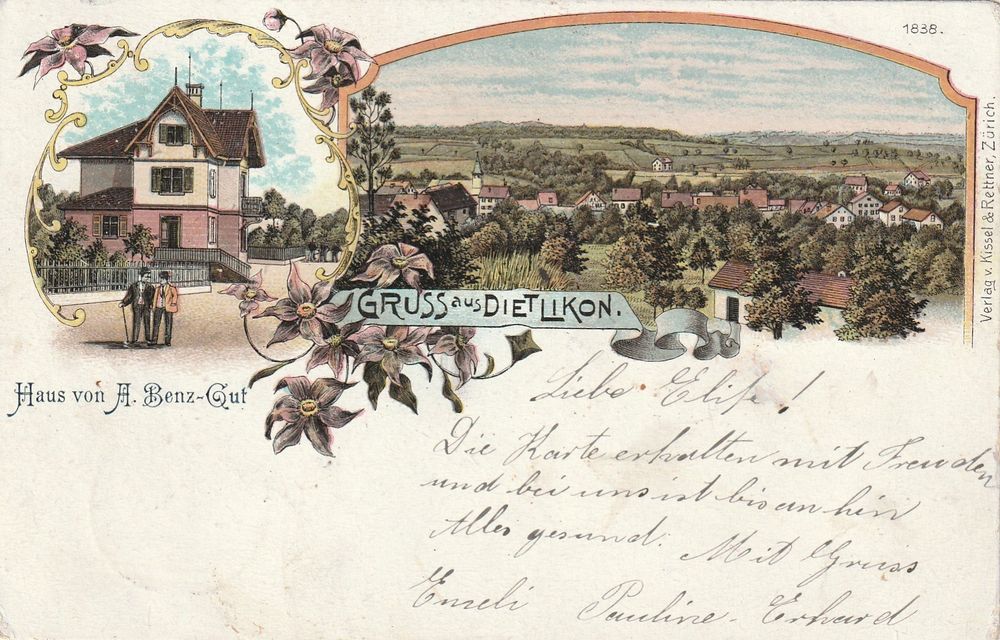 1838.
Verlag v. Kissel & Rettner, Zürich.
GRUSS aus DIETLIKON.
Haus von A. Benz-Gut
Liebe Elise!
Die Karte erhalten mit Freuden
und bei uns ist bis an hin
Alles gesund. Mit Gruss
Emeli Pauline - Erhard